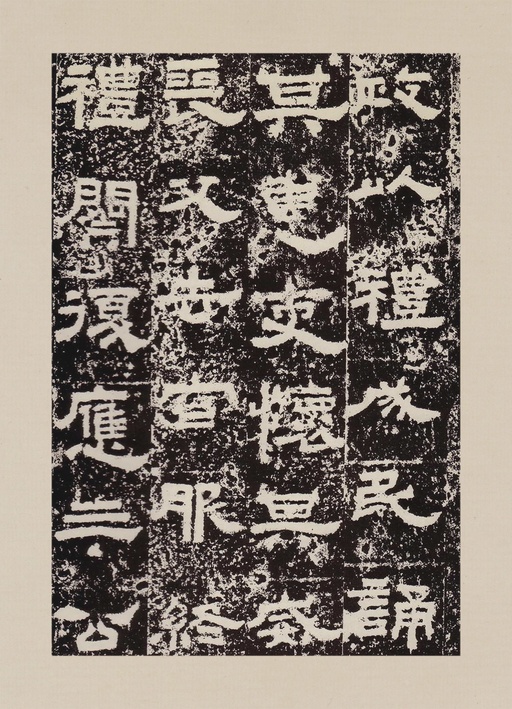 政以禮成民誦
其惠吏懷其威
喪父去官服終
禮闋復應三公